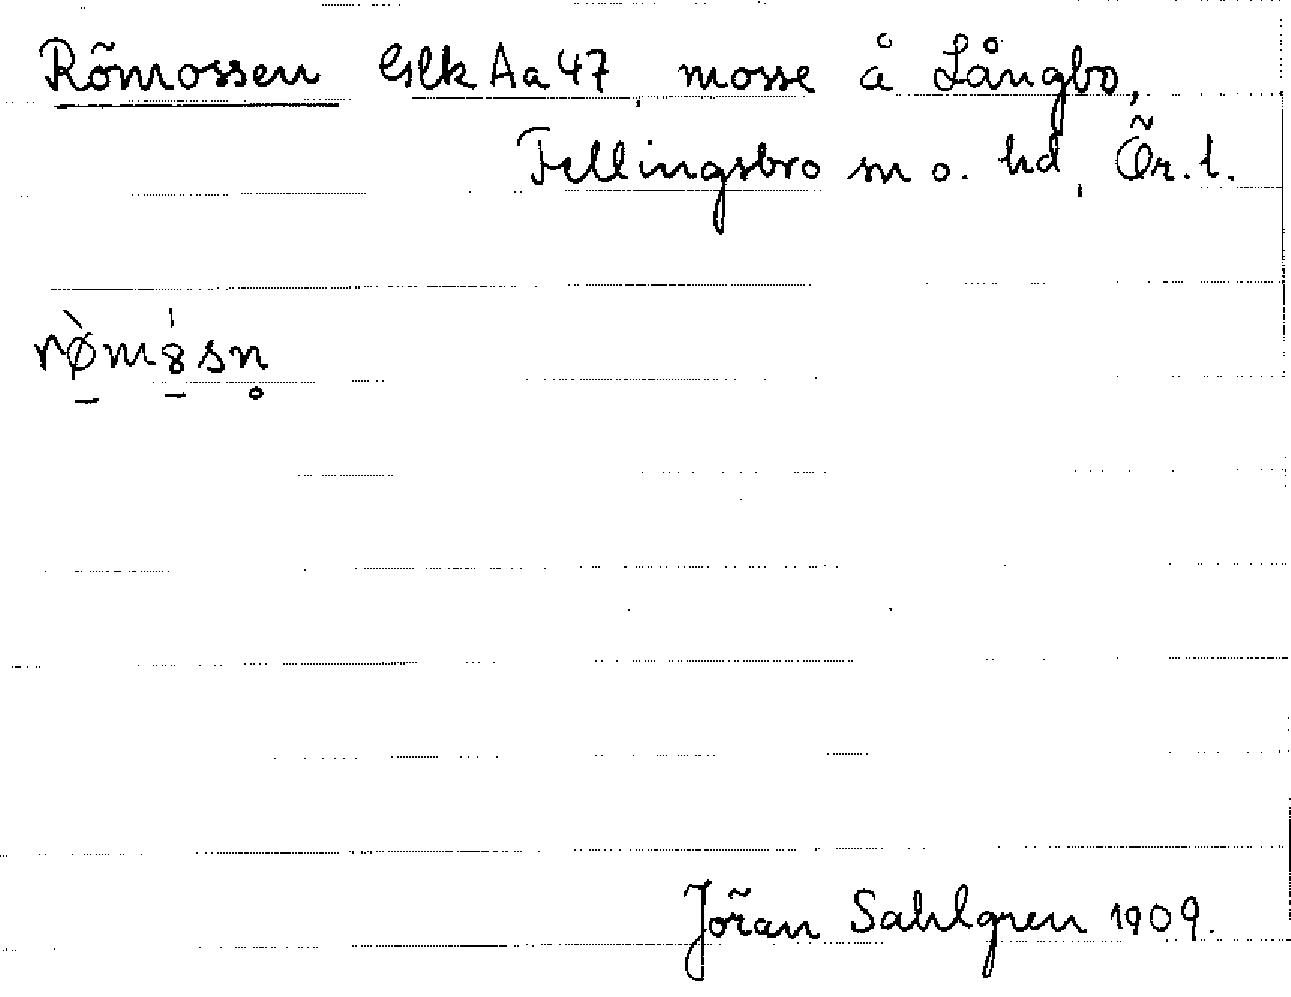 Römossen GlkAa47, mosse å Långbo,
Fellingsbro sn o. hd, Ör.l.
rø̀mȣsn̥
Jöran Sahlgren 1909.